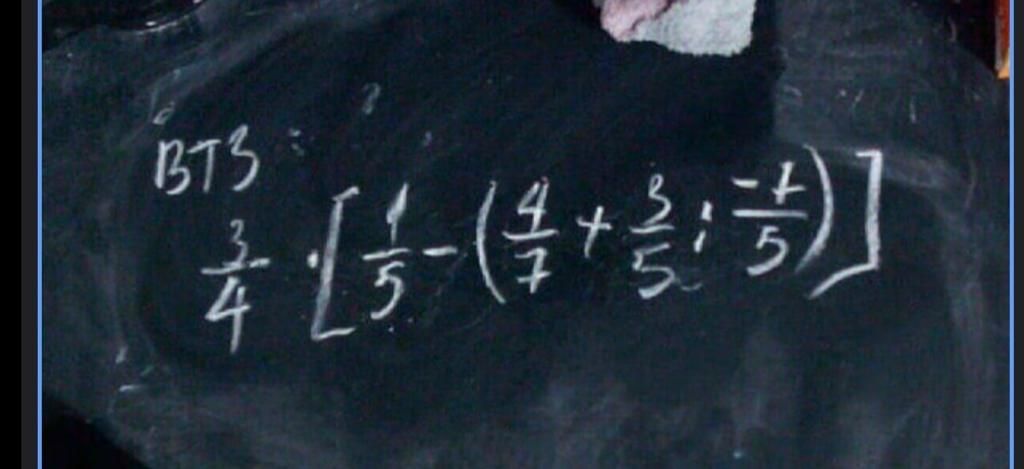 BT3
3/4 · [1/5 - (4/7 + 3/5 : -1/5)]